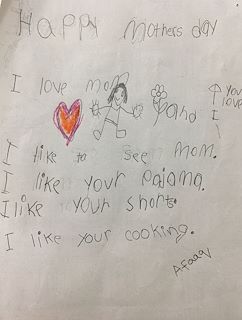 Happy Mothers day
I love mom
and I
You
love
I like to see mom.
I like your pajama.
I like your shorts.
I like your cooking.
Afaaqy